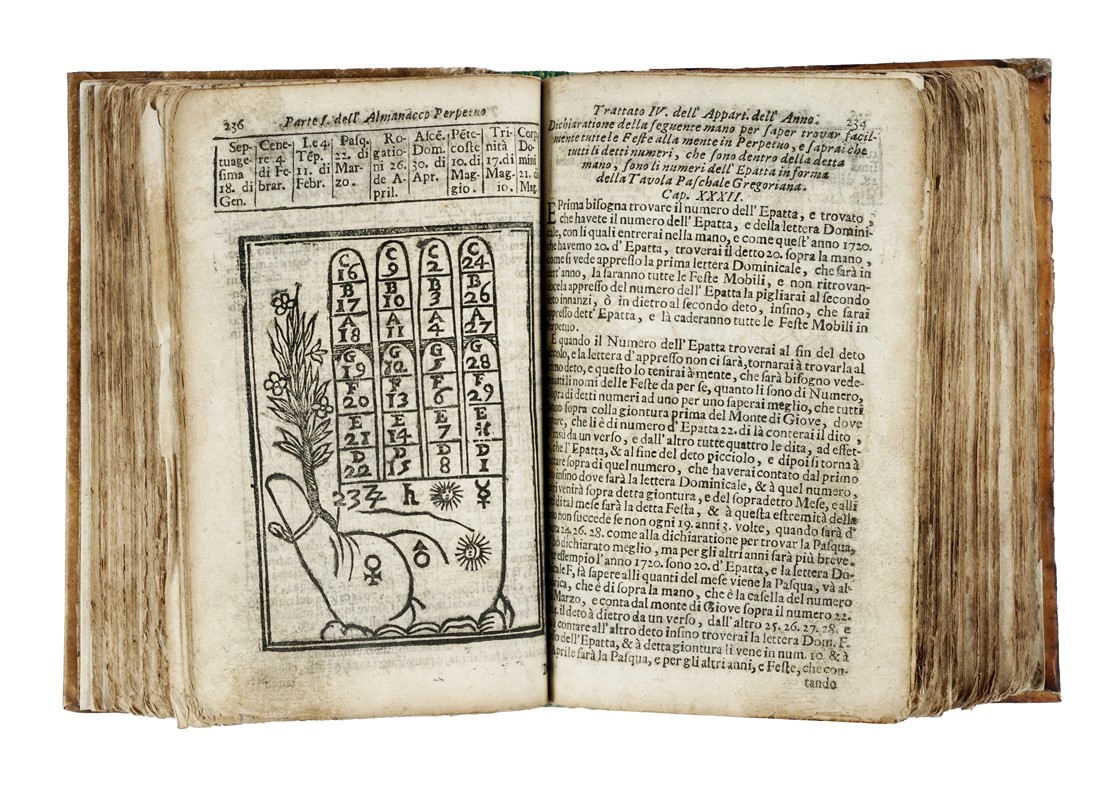 236
Parte I. dell' Almanacco Perpetuo
Sep-
tuage-
ſima
18. di
Gen.
Cene-
re 4.
di Fe-
brar.
I.e 4.
Tép.
11. di
Febr.
Paſq.
22. di
Mar-
zo.
Ro-
gatio-
ni 26.
de A-
pril.
Aſcē.
Dom.
30. di
Apr.
Pēte-
coſte
10. di
Mag-
gio.
Tri-
nità
17. di
Mag-
io.
Corp.
Do-
mini
21. di
Mag.
C C C C
16 9 2 24
B B B B
17 10 3 26
A A A A
18 11 4 27
G G G G
19 12 5 28
F F F F
20 13 6 29
E E E E
21 14 7 *
D D D D
22 15 8 1
23 ♃ ♄ ☉ ☿
♀
Trattato IV. dell' Appart. dell' Anno.
234
Dichiaratione della ſeguente mano per ſaper trovar facil-
mente tutte le Feſte alla mente in Perpetuo, e ſaprai che
tutti li detti numeri, che ſono dentro della detta
mano, ſono li numeri dell' Epatta in forma
della Tavola Paſchale Gregoriana.
Cap. XXXII.
E Prima biſogna trovare il numero dell' Epatta, e trovato,
che havete il numero dell' Epatta, e della lettera Domini-
cale, con li quali entrerai nella mano, e come queſt' anno 1720.
che havemo 20. d' Epatta, troverai il detto 20. ſopra la mano,
come ſi vede appreſſo la prima lettera Dominicale, che ſarà in
anno, la ſaranno tutte le Feſte Mobili, e non ritrovan-
appreſſo del numero dell' Epatta la pigliarai al ſecondo
innanzi, ò in dietro al ſecondo deto, inſino, che ſarai
appreſſo dett' Epatta, e là caderanno tutte le Feſte Mobili in
perpetuo.
E quando il Numero dell' Epatta troverai al fin del deto
e la lettera d' appreſſo non ci ſarà, tornarai à trovarla al
deto, e queſto lo tenirai à mente, che ſarà biſogno vede-
li nomi delle Feſte da per ſe, quanto li ſono di Numero,
di detti numeri ad uno per uno ſaperai meglio, che tutti
ſopra colla giontura prima del Monte di Giove, dove
che li è di numero d' Epatta 22. di là conterai il dito,
da un verſo, e dall' altro tutte quattro le dita, ad effet-
l' Epatta, & al fine del deto picciolo, e dipoi ſi torna à
ſopra di quel numero, che haverai contato dal primo
inſino dove ſarà la lettera Dominicale, & à quel numero,
venirà ſopra detta giontura, e del ſopradetto Meſe, e alli
di tal meſe ſarà la detta Feſta, & à queſta eſtremità della
non ſuccede ſe non ogni 19. anni 3. volte, quando ſarà d'
24. 26. 28. come alla dichiaratione per trovar la Paſqua,
dichiarato meglio, ma per gli altri anni ſarà più breve.
eſſempio l' anno 1720. ſono 20. d' Epatta, e la lettera Do-
F, ſà ſapere alli quanti del meſe viene la Paſqua, và al-
che è di ſopra la mano, che è la caſella del numero
Marzo, e conta dal monte di Giove ſopra il numero 22.
il deto à dietro da un verſo, dall' altro 25. 26. 27. 28. e
contare all' altro deto inſino troverai la lettera Dom. F.
dell' Epatta, & à detta giontura li vene in num. 10. & à
Aprile ſarà la Paſqua, e per gli altri anni, e Feſte, che con-
tando